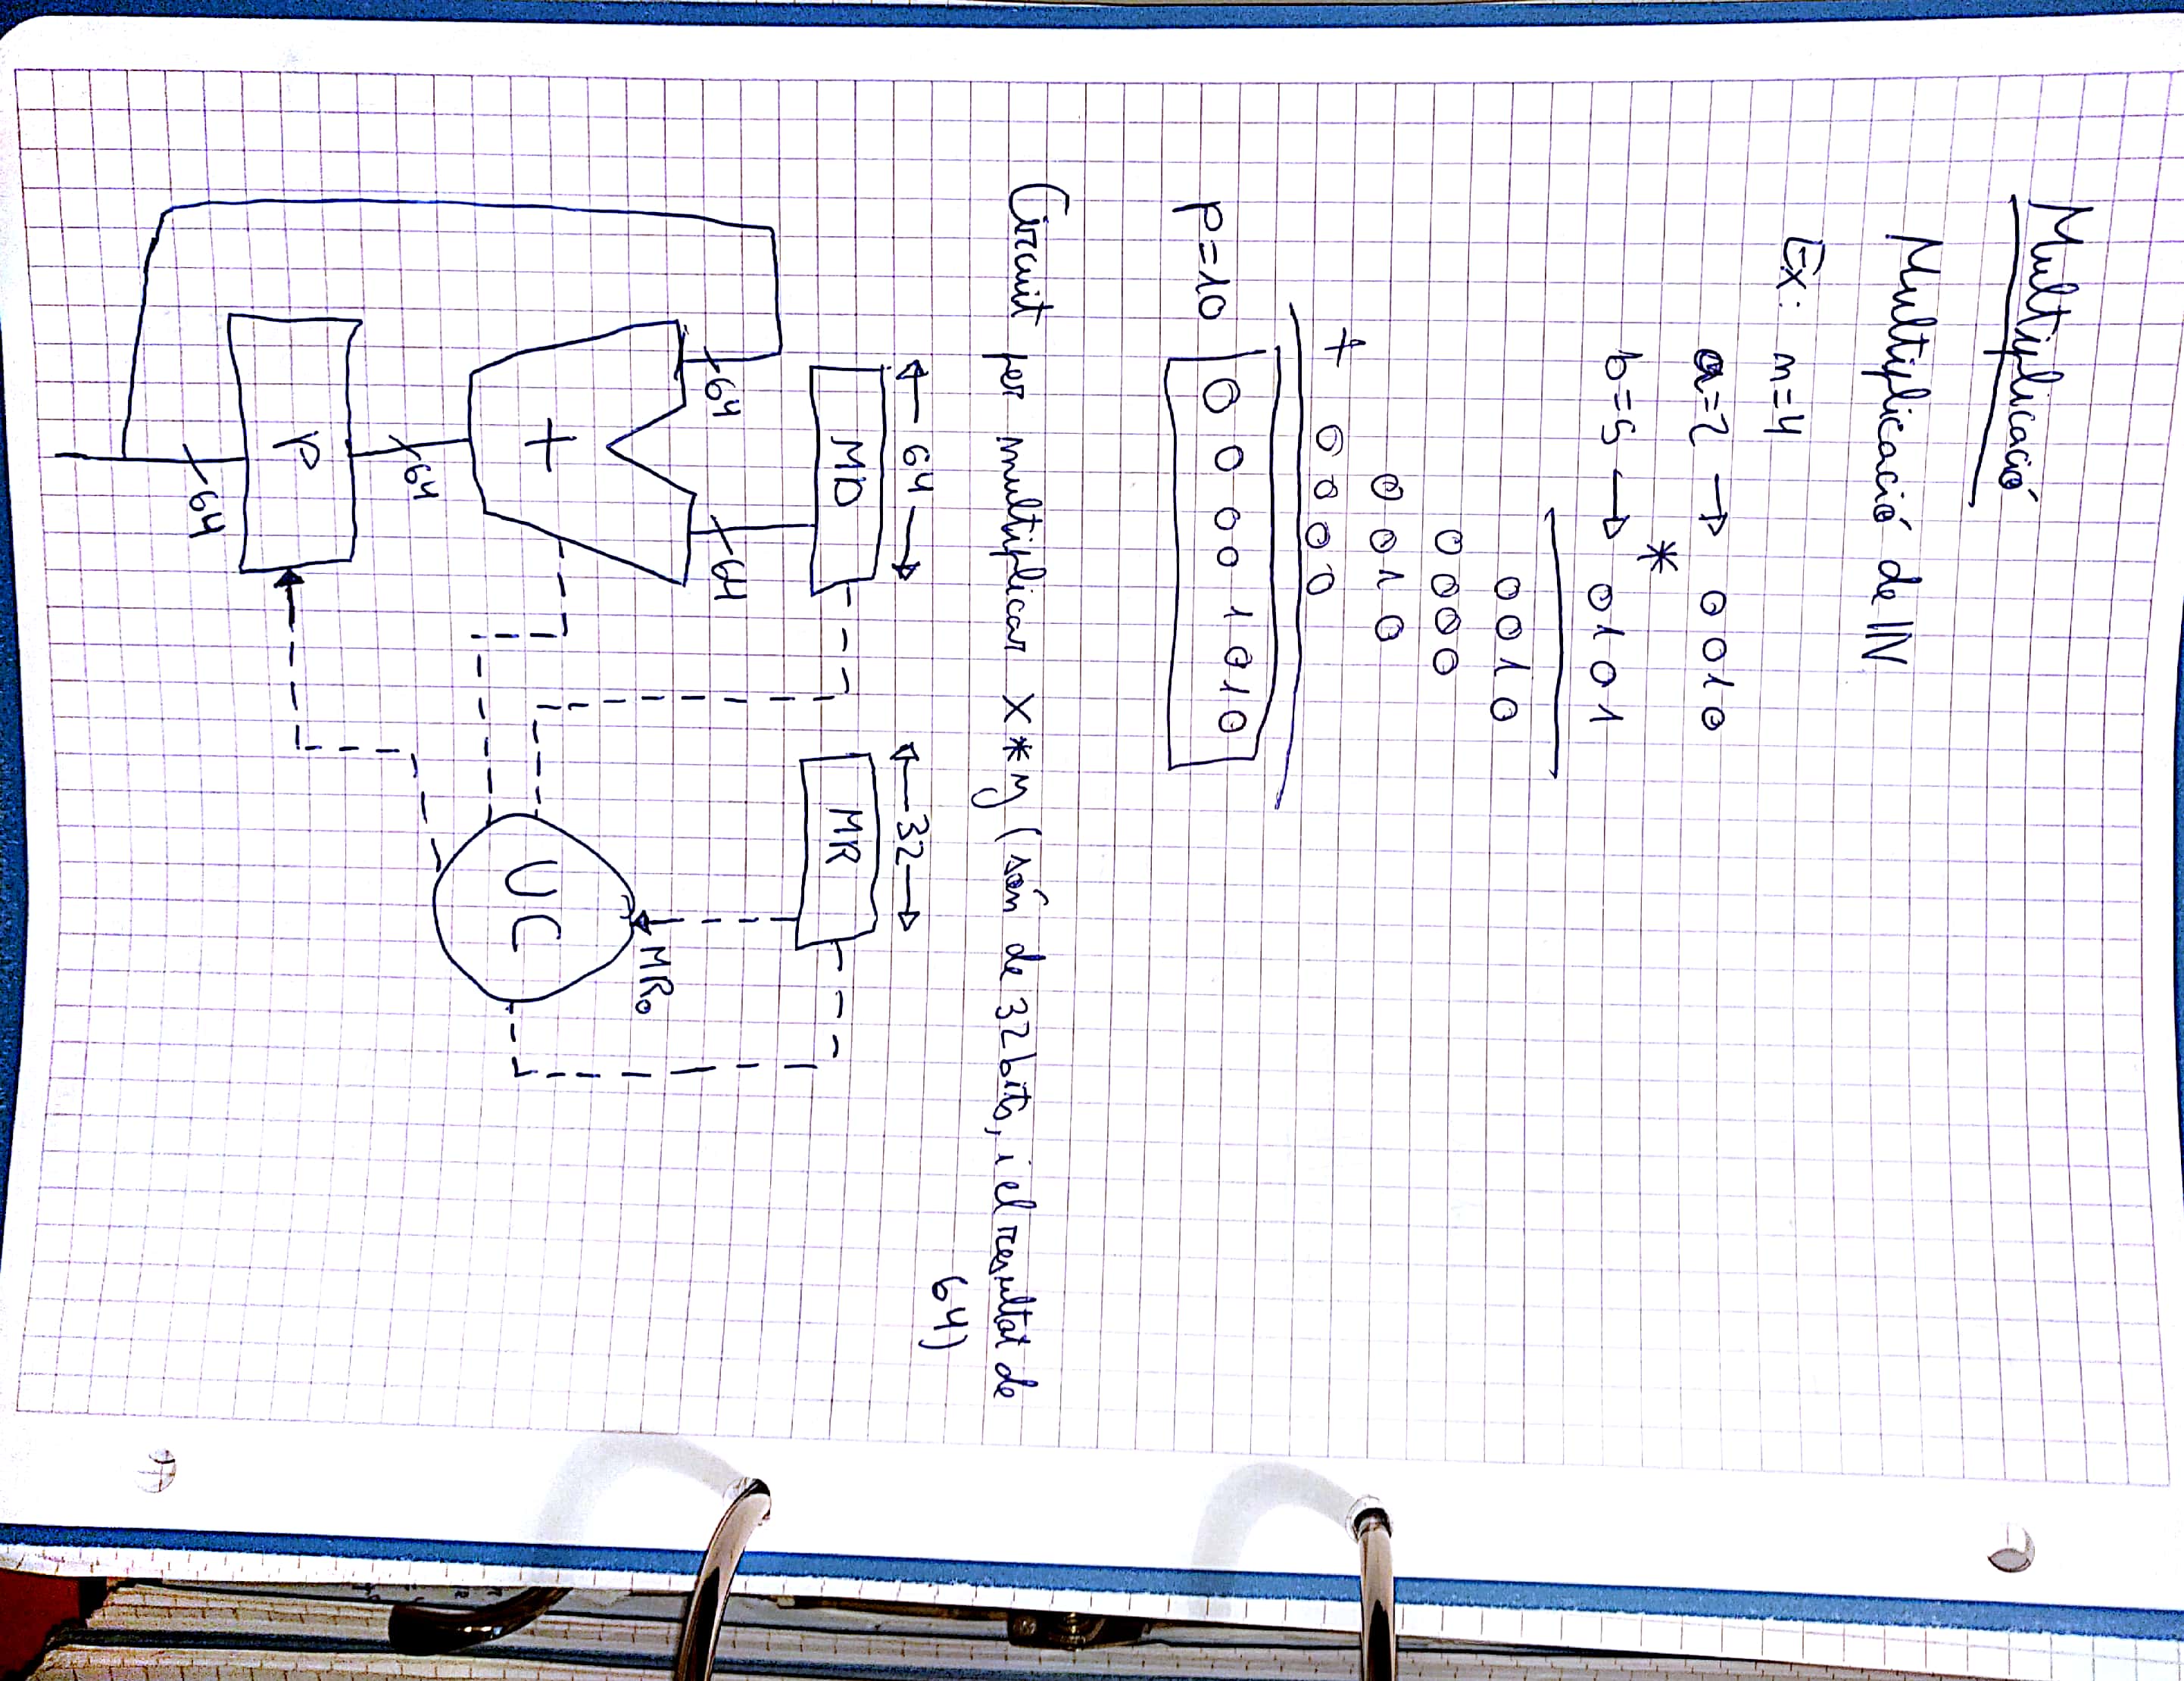 Multiplicació
Multiplicació de ℕ
Ex: n=4
a=2 → 0010
*
b=5 → 0101
0010
0000
0010
+ 0000
p=10 00001010
Circuit per multiplicar x * y (són de 32 bits, i el resultat de
64)
64 32
MD MR
64 64
MR₀
+ UC
64
P
64